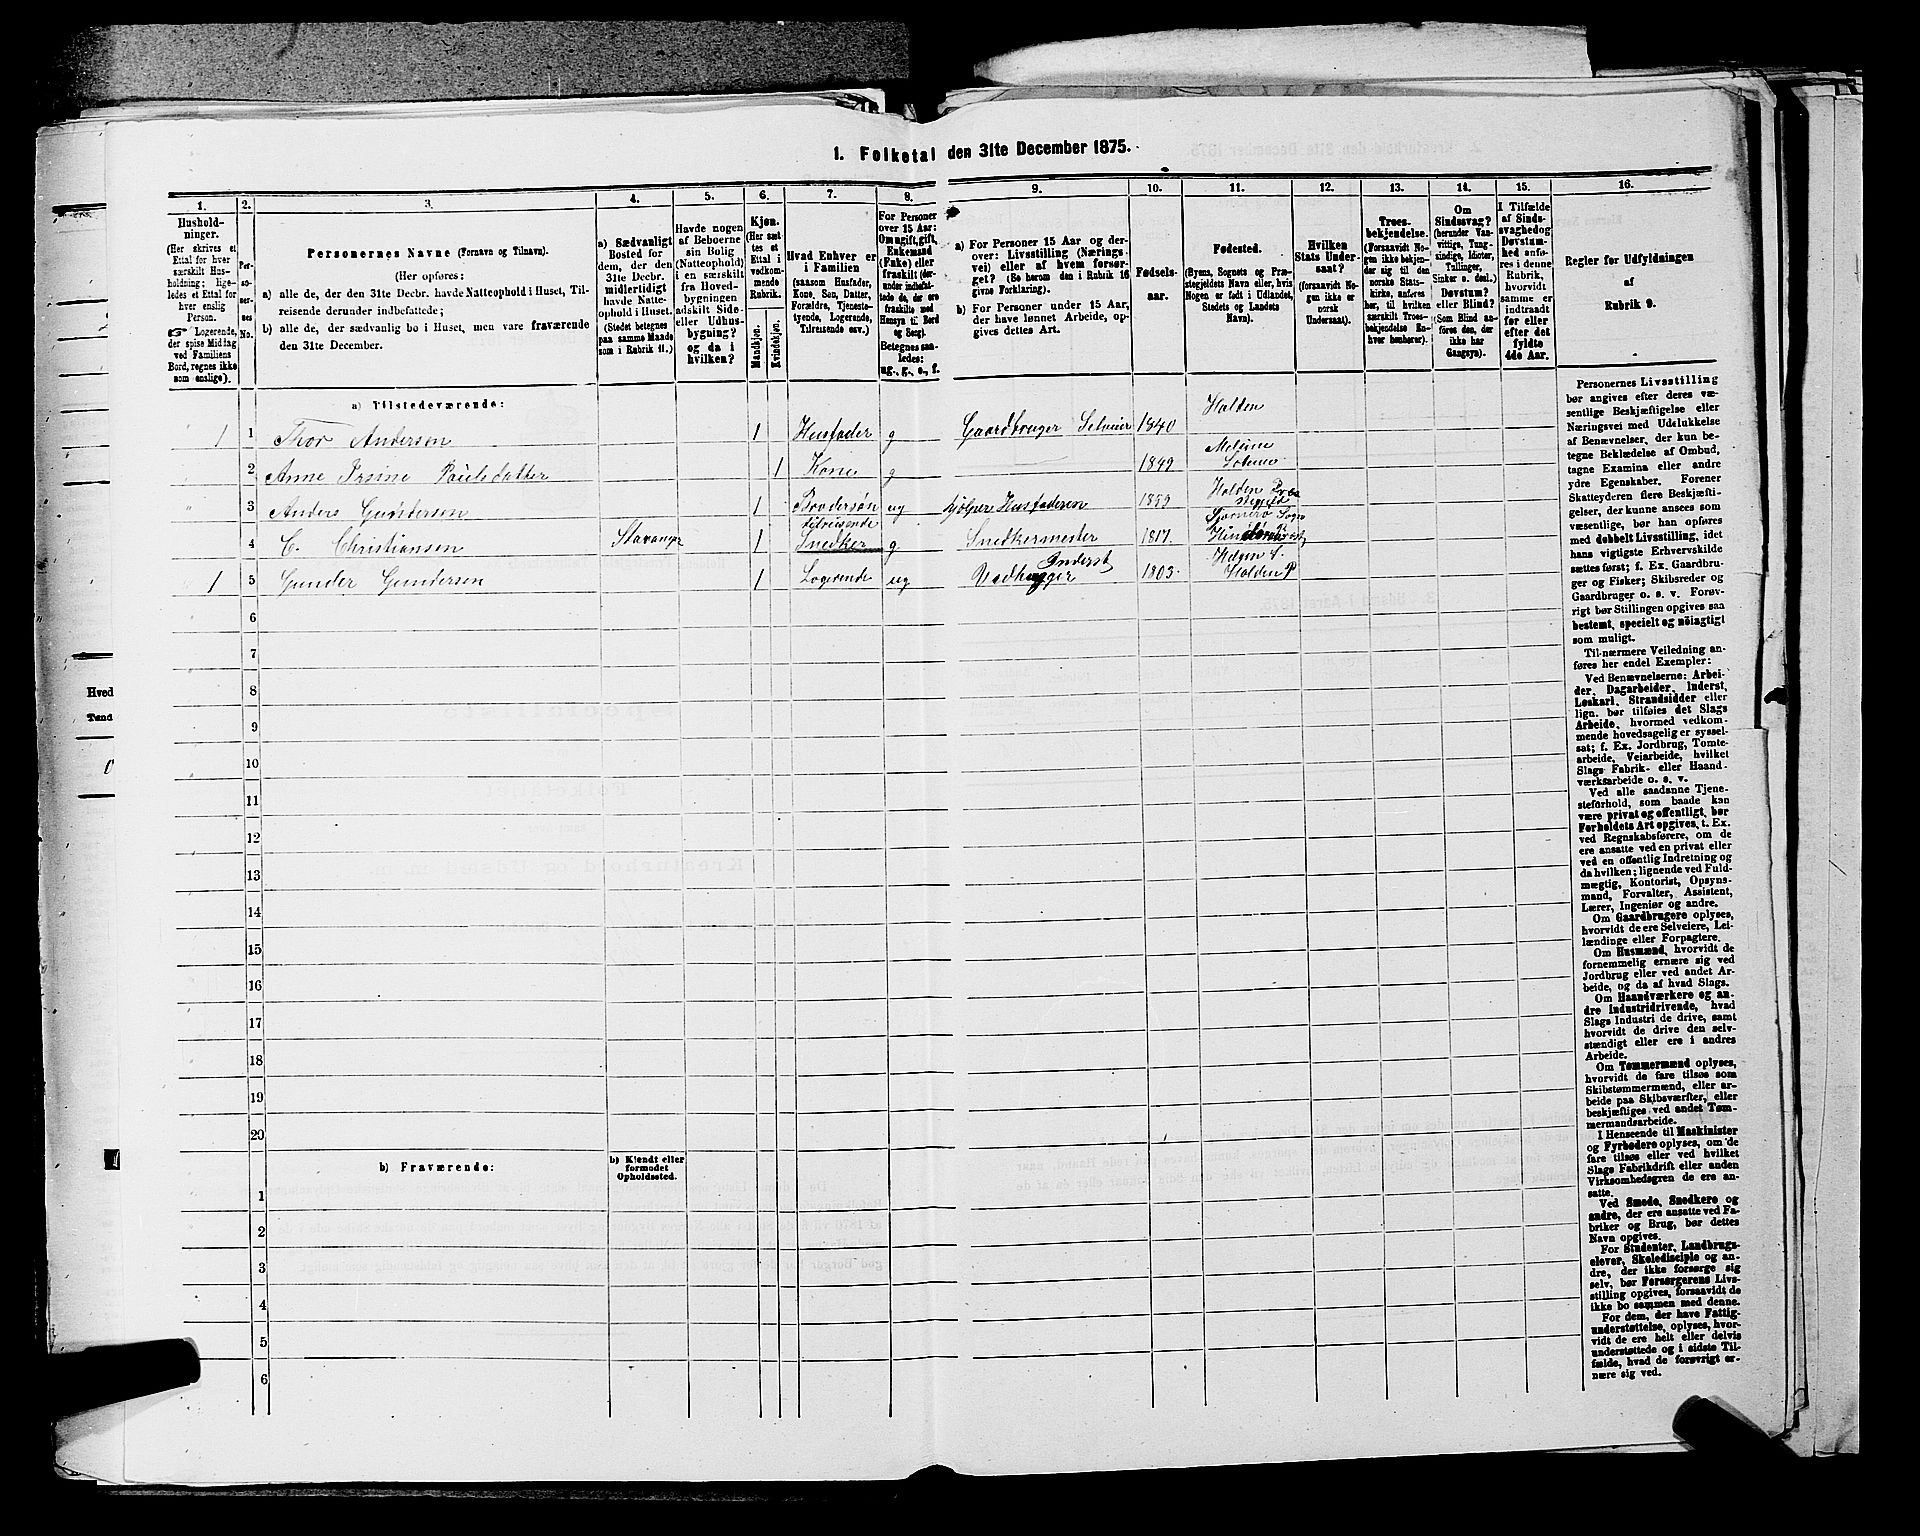 1. Folketal den 31te December 1875.
1.
Hushold-
ninger.
(Her skrives et
Ettal for hver
særskilt Hus-
holdning; lige-
ledes et Ettal for
hver enslig
Person.
Logerende,
der spise Middag
ved Familiens
Bord, regnes ikke
som enslige).
2.
Per-
so-
ner-
nes
No.
3.
Personernes Navne (Fornavn og Tilnavn).
(Her opføres:
a) alle de, der den 31te Decbr. havde Natteophold i Huset, Til-
reisende derunder indbefattede;
b) alle de, der sædvanlig bo i Huset, men vare fraværende
den 31te December.
4.
a) Sædvanligt
Bosted for
dem, der den
31te Decbr.
midlertidigt
havde Natte-
ophold i Huset.
(Stedet betegnes
paa samme Maade
som i Rubrik 11.)
5.
Havde nogen
af Beboerne
sin Bolig
(Natteophold)
i en særskilt
fra Hoved-
bygningen
adskilt Side-
eller Udhus-
bygning?
og da i
hvilken?
6.
Kjøn.
(Her sæt-
tes et
Ettal i
vedkom-
mende
Rubrik.
Mandkjøn.
Kvindekjøn.
7.
Hvad Enhver er
i Familien
(saasom Husfader,
Kone, Søn, Datter,
Forældre, Tjeneste-
tyende, Logerende,
Tilreisende osv.)
8.
For Personer
over 15 Aar:
Om ugift, gift,
Enkemand
(Enke) eller
fraskilt (der-
under indbefat-
tede de, der ere
fraskilte med
Hensyn til Bord
og Seng).
Betegnes saa-
ledes:
ug., g., e., f.
9.
a) For Personer 15 Aar og der-
over: Livsstilling (Nærings-
vei) eller af hvem forsør-
get? (Se herom den i Rubrik 16
givne Forklaring).
b) For Personer under 15 Aar,
der have lønnet Arbeide, op-
gives dettes Art.
10.
Fødsels-
aar.
11.
Fødested.
(Byens, Sognets og Præ-
stegjeldets Navn eller, hvis
Nogen er født i Udlandet,
Stedets og Landets
Navn).
12.
Hvilken
Stats Under-
saat?
(forsaavidt No-
gen ikke er
norsk
Undersaat).
13.
Troes-
bekjendelse.
(Forsaavidt No-
gen ikke bekjen-
der sig til den
norske Stats-
kirke, anføres
her, til hvilken
særskilt Troes-
bekjendelse En-
hver henhører).
14.
Om
Sindssvag?
(herunder Van-
vittige, Tung-
sindige, Idioter,
Tullinger,
Sinker o. desl.)
Døvstum?
eller Blind?
(Som Blind an-
føres den, der
ikke har
Gangsyn).
15.
I Tilfælde
af Sinds-
svaghed og
Døvstum-
hed anfø-
res i denne
Rubrik,
hvorvidt
samme er
indtraadt
før eller
efter det
fyldte
4de Aar.
16.
Regler for Udfyldningen
af
Rubrik 9.
a) Tilstedeværende:
1 1 Thor Andersen 1 Husfader g Gaardbruger Selveier 1840 Holden
2 Anne Paulsdatter 1 Kone g 1849
3 Anders Gundersen 1 Brodersøn ug hjelper Husfaderen 1859 Holden
4 C. Christiansen Stavanger 1 tilreisende Snedker g Snedkermester 1817
1 5 Gunder Gundersen 1 Logerende ug Vedhugger Inderst 1803 Helgen S. Holden P
6
7
8
9
10
11
12
13
14
15
16
17
18
19
20
b) Fraværende:
b) Kjendt eller
formodet
Opholdssted.
1
2
3
4
5
6
Personernes Livsstilling
bør angives efter deres væ-
sentlige Beskjæftigelse eller
Næringsvei med Udelukkelse
af Benævnelser, der kun be-
tegne Beklædelse af Ombud,
tagne Examina eller andre
ydre Egenskaber. Forener
Skatteyderen flere Beskjæfti-
gelser, der kunne ansees som
væsentlige, bør han opføres
med dobbelt Livsstilling, idet
hans vigtigste Erhvervskilde
sættes først; f. Ex. Gaardbru-
ger og Fisker; Skibsreder og
Gaardbruger o. s. v. Forøv-
rigt bør Stillingen opgives saa
bestemt, specielt og nöiagtigt
som muligt.
Til nærmere Veiledning an-
føres her endel Exempler:
Ved Benævnelserne: Arbei-
der, Dagarbeider, Inderst,
Løskarl, Strandsidder eller
lign. bør tilføies det Slags
Arbeide, hvormed vedkom-
mende hovedsagelig er syssel-
sat; f. Ex. Jordbrug, Tomte-
arbeide, Veiarbeide, hvilket
Slags Fabrik- eller Haand-
værksarbeide o. s. v.
Ved alle saadanne Tjene-
steforhold, som baade kan
være privat og offentligt, bør
Forholdets Art opgives, t. Ex.
ved Regnskabsførere, om de
ere ansatte ved en privat eller
ved en offentlig Indretning og
da hvilken; lignende ved Fuld-
mægtig, Kontorist, Opsyns-
mand, Forvalter, Assistent,
Lærer, Ingeniør og andre.
Om Gaardbrugere oplyses,
hvorvidt de ere Selveiere, Lei-
lændinge eller Forpagtere.
Om Husmænd, hvorvidt de
fornemmelig ernære sig ved
Jordbrug eller ved andet Ar-
beide, og da af hvad Slags.
Om Haandværkere og an-
dre Industridrivende, hvad
Slags Industri de drive, samt
hvorvidt de drive den selv-
stændigt eller ere i andres
Arbeide.
Om Tømmermænd oplyses,
hvorvidt de fare tilsøs som
Skibstømmermænd, eller ar-
beide paa Skibsværfter, eller
beskjæftiges ved andet Tøm-
mermandsarbeide.
I Henseende til Maskinister
og Fyrbødere oplyses, om de
fare tilsøs eller ved hvilket
Slags Fabrikdrift eller anden
Virksomhedsgren de ere an-
satte.
Ved Smede, Snedkere og
andre, der ere ansatte ved Fa-
briker og Brug, bør dettes
Navn opgives.
For Studenter, Landbrugs-
elever, Skoledisciple og an-
dre, der ikke forsørge sig
selv, bør Forsørgerens Livs-
stilling opgives, forsaavidt de
ikke bo sammen med denne.
For dem, der have Fattig-
understøttelse, oplyses, hvor-
vidt de ere helt eller delvis
understøttede og i sidste Til-
fælde, hvad de forøvrigt er-
nære sig ved.
Hved
Tønd